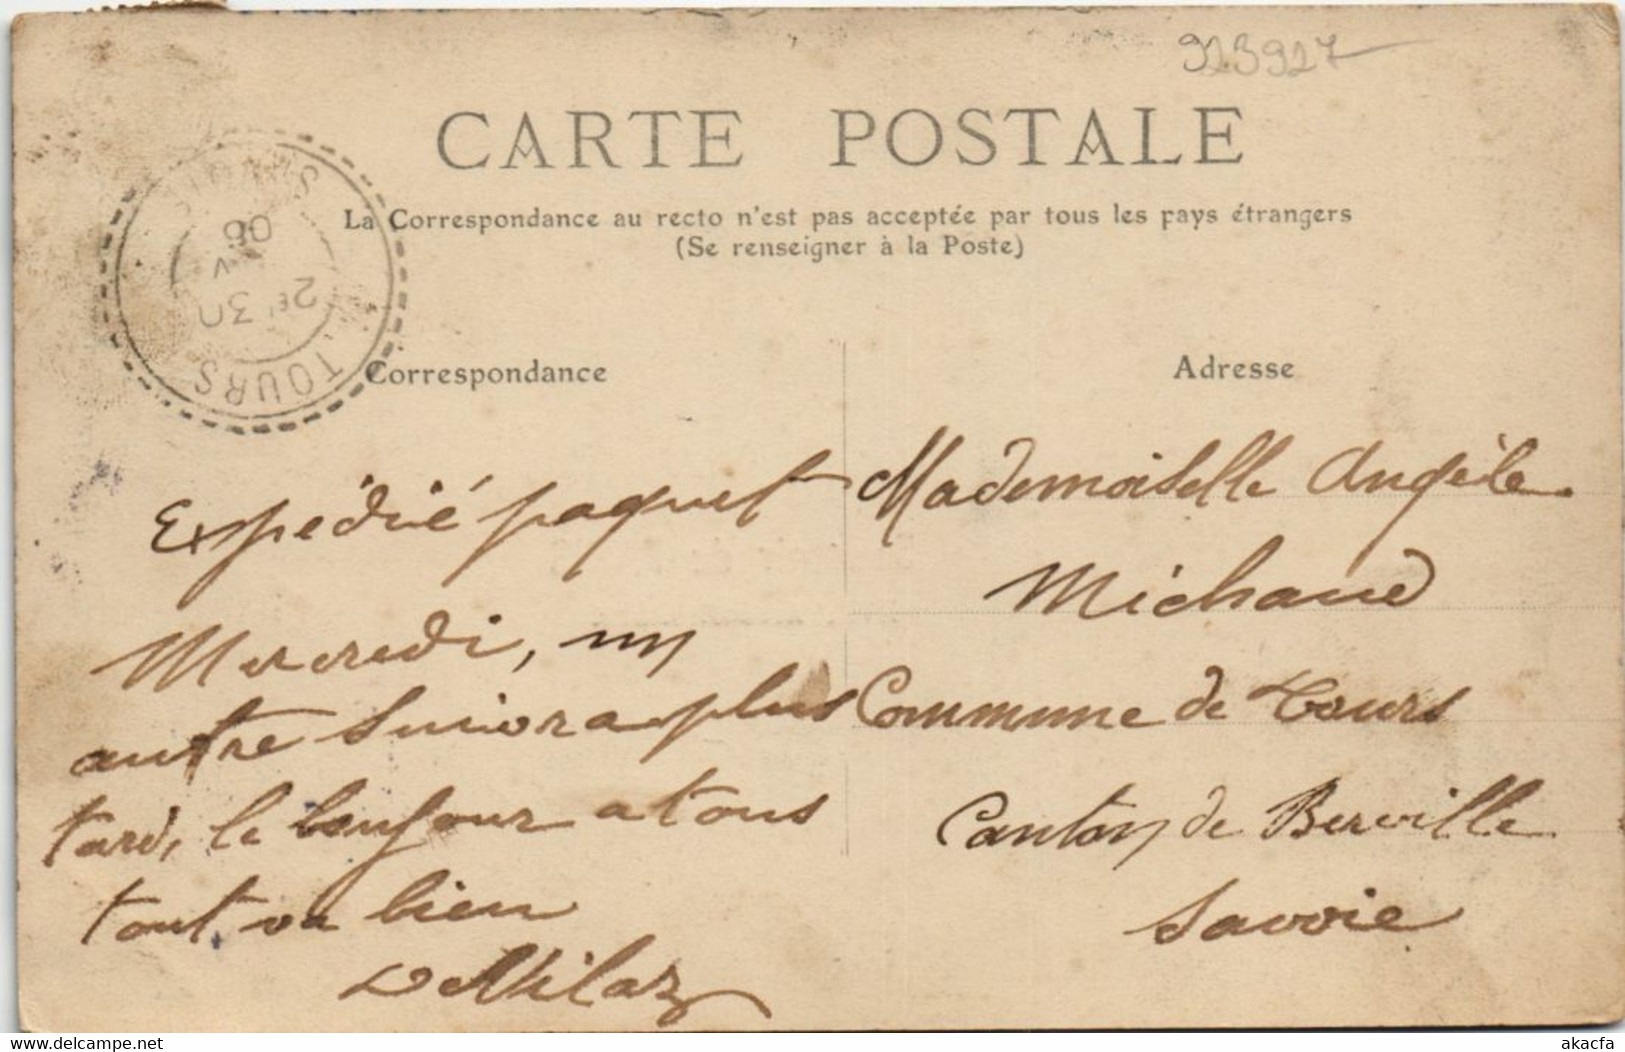 923927
CARTE POSTALE
La Correspondance au recto n'est pas acceptée par tous les pays étrangers
(Se renseigner à la Poste)
TOURS
2E 30
06
Correspondance
Expédié paquet
Mercredi, un
autre suivra plus
tard, le bonjour a tous
tout va bien
Adresse
Mademoiselle Angèle
Michaud
Commune de Tours
Canton de Berville
Savoie
delcampe.net
akacfa